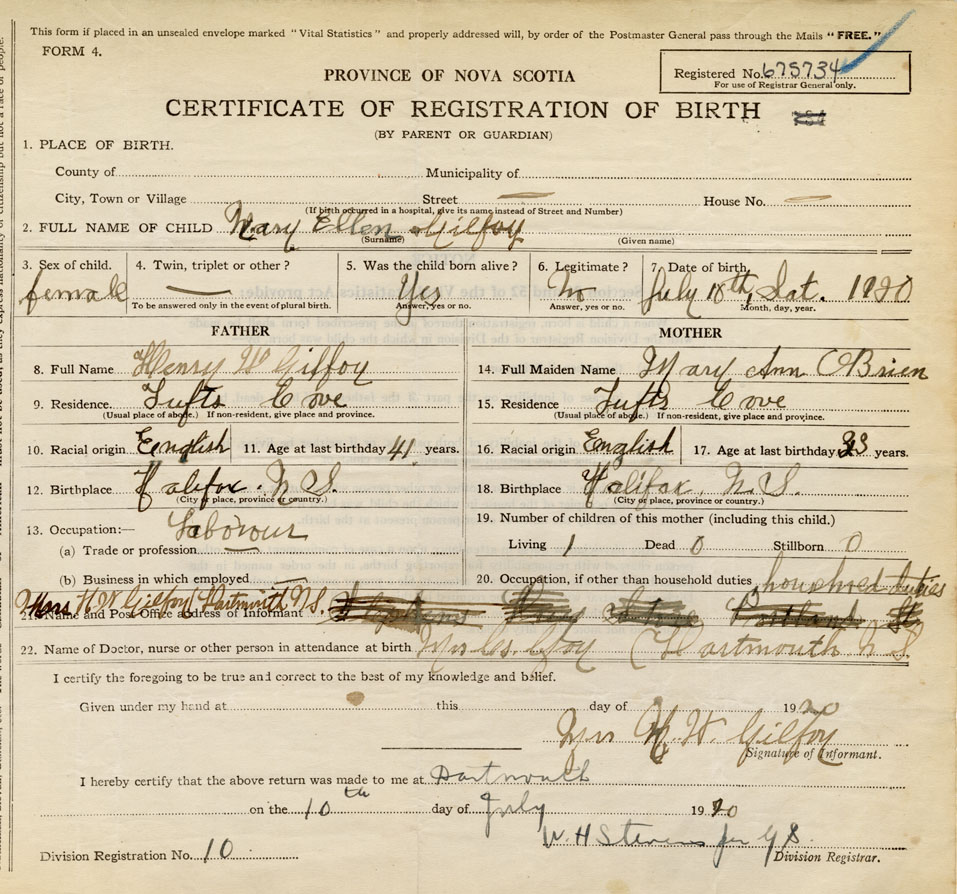 This form if placed in an unsealed envelope marked "Vital Statistics" and properly addressed will, by order of the Postmaster General pass through the Mails "FREE."
FORM 4.
PROVINCE OF NOVA SCOTIA
Registered No. 675734
For use of Registrar General only.
CERTIFICATE OF REGISTRATION OF BIRTH
(BY PARENT OR GUARDIAN)
1. PLACE OF BIRTH.
County of Municipality of
City, Town or Village Street — House No. —
(If birth occurred in a hospital, give its name instead of Street and Number)
2. FULL NAME OF CHILD Mary Ellen Gilfoy
(Surname) (Given name)
3. Sex of child. 4. Twin, triplet or other? 5. Was the child born alive? 6. Legitimate? 7. Date of birth
female — Yes No July 10th, Sat. 1920
To be answered only in the event of plural birth. Answer, yes or no. Answer, yes or no. Month, day, year.
FATHER
8. Full Name Henry W Gilfoy
9. Residence. Tufts Cove
(Usual place of abode.) If non-resident, give place and province.
10. Racial origin English 11. Age at last birthday 41 years.
12. Birthplace Halifax N.S.
(City or place, province or country.)
13. Occupation:— Labourer
(a) Trade or profession —
(b) Business in which employed —
MOTHER
14. Full Maiden Name Mary Ann O'Brien
15. Residence Tufts Cove
(Usual place of abode.) If non-resident, give place and province.
16. Racial origin English 17. Age at last birthday 23 years.
18. Birthplace Halifax, N.S.
(City or place, province or country.)
19. Number of children of this mother (including this child.)
Living 1 Dead 0 Stillborn 0
20. Occupation, if other than household duties duties
Mrs H W Gilfoy Dartmouth N.S.
21. Name and Post Office address of Informant
22. Name of Doctor, nurse or other person in attendance at birth Mrs Dartmouth N S
I certify the foregoing to be true and correct to the best of my knowledge and belief.
Given under my hand at this day of 1920
Mrs H. W. Gilfoy
Signature of Informant.
I hereby certify that the above return was made to me at Dartmouth
on the 10th day of July 1920
W. H Stevens
Division Registration No. 10 Division Registrar.